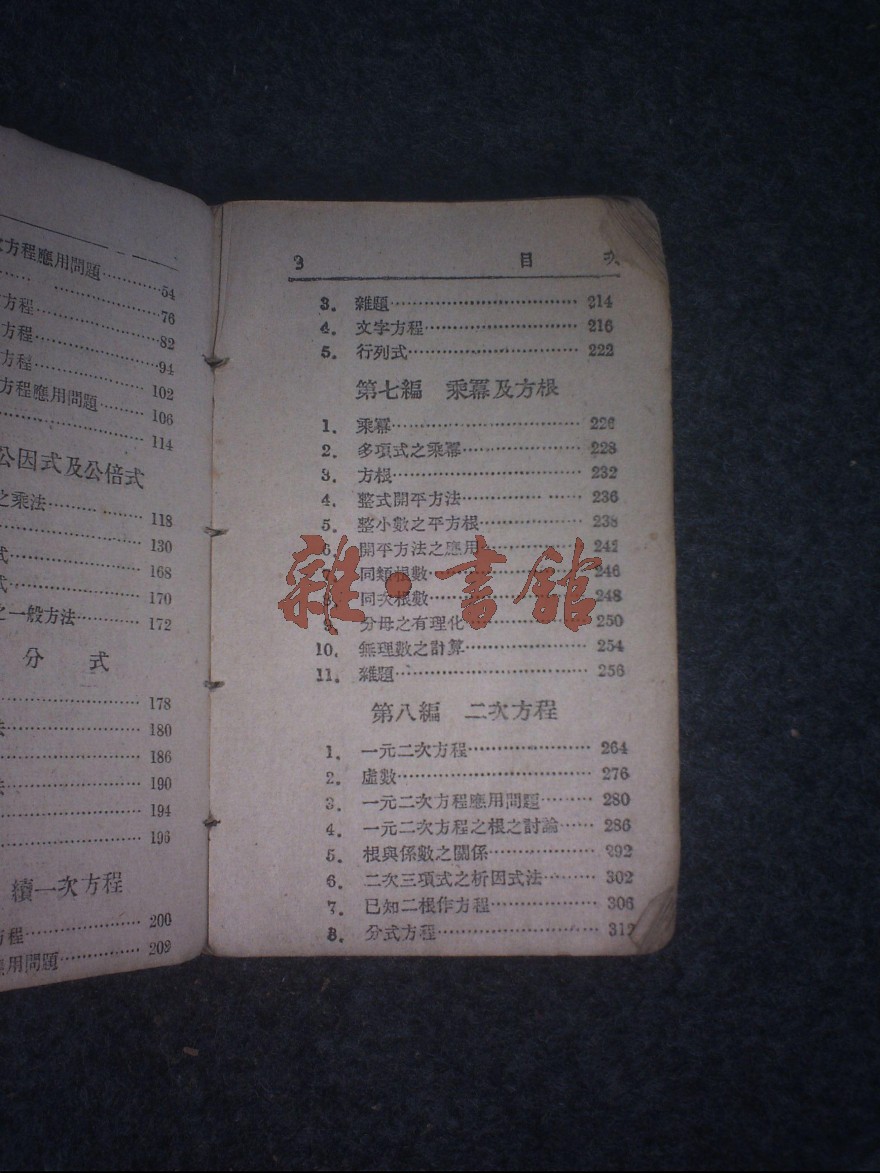 方程應用問題…………54
……76
方程……82
方程……94
方程……102
方程應用問題……106
……114
公因式及公倍式
之乘法……118
……130
式……168
式……170
之一般方法……172
分 式
……178
法……180
……186
法……190
……194
……196
續一次方程
方程……200
應用問題……209
3 目 次
3. 雜題……214
4. 文字方程……216
5. 行列式……222
第七編 乘冪及方根
1. 乘冪……226
2. 多項式之乘冪……228
3. 方根……232
4. 整式開平方法……236
5. 整小數之平方根……238
6. 開平方法之應用……242
7. 同類根數……246
8. 同次根數……248
9. 分母之有理化……250
10. 無理數之計算……254
11. 雜題……256
第八編 二次方程
1. 一元二次方程……264
2. 虛數……276
3. 一元二次方程應用問題……280
4. 一元二次方程之根之討論……286
5. 根與係數之關係……292
6. 二次三項式之析因式法……302
7. 已知二根作方程……306
8. 分式方程……312
雜·書館